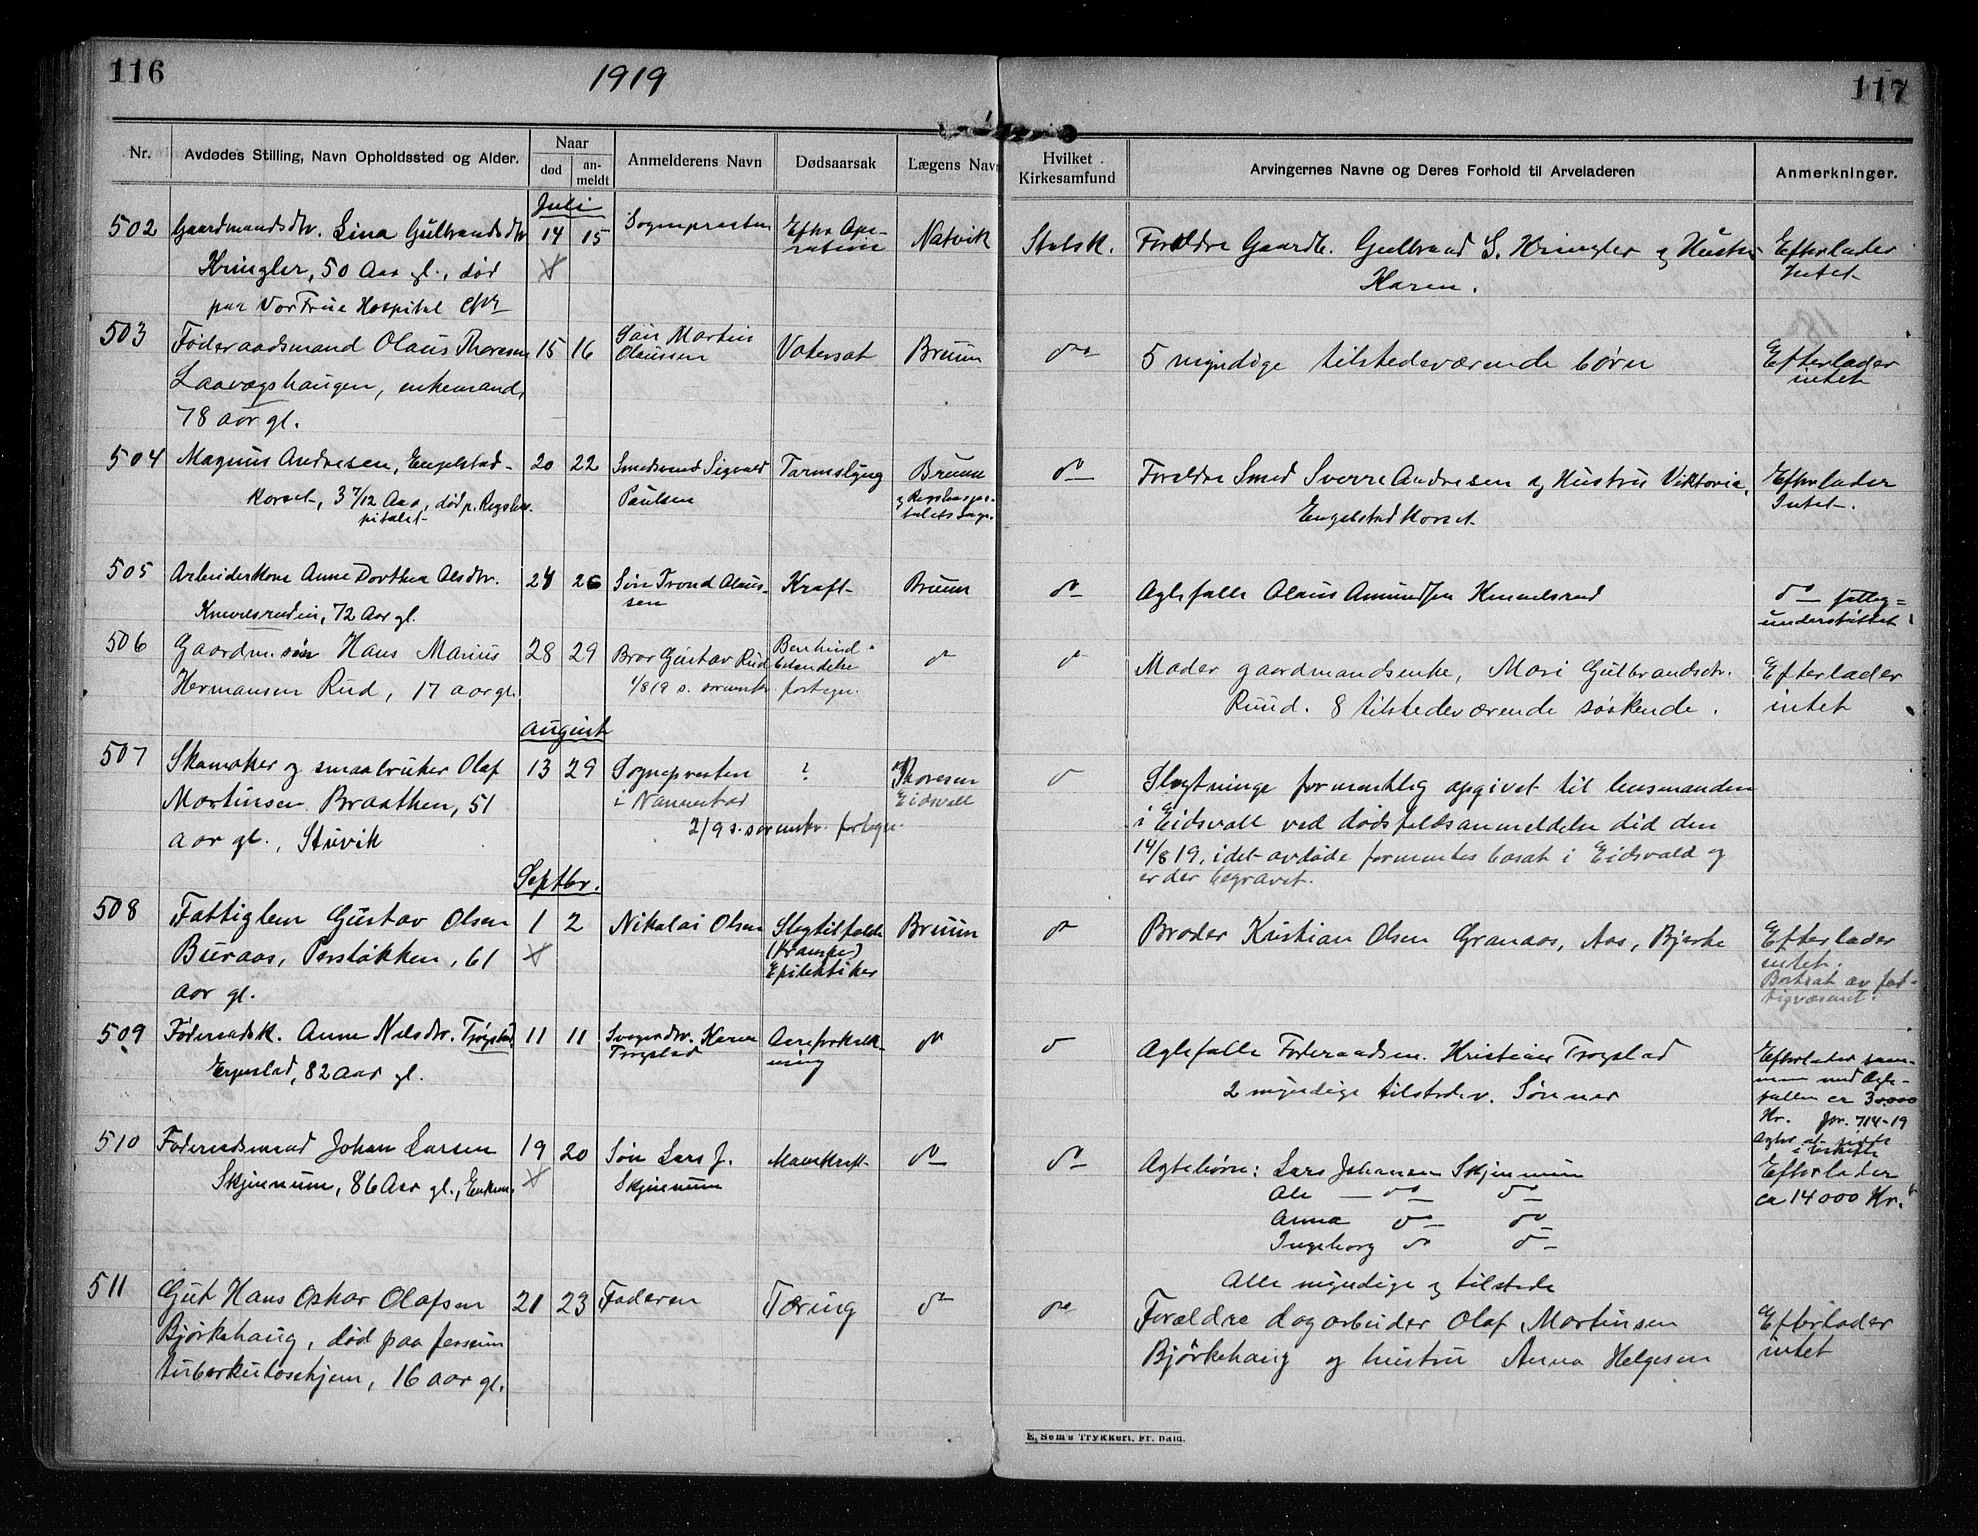 116
1919
117
Nr.
Avdødes Stilling, Navn Opholdssted og Alder.
Naar
død
an-
meldt
Anmelderens Navn
Dødsaarsak
Lægens Navn
Hvilket
Kirkesamfund
Arvingernes Navne og Deres Forhold til Arveladeren
Anmerkninger.
Juli
502 Gaardmandsdtr. Lina Gulbrandsdtr 14 15 Sogneprasten Efter Ope- Natvik Statsk. Foreldre Gaardb. Gulbrand S. Kringler og Hustru Efterlader
Kringler, 50 Aar gl., død ration Karen. Intet
paa Vor Frue Hospital
503 Føderaadsmand Olaus Thoresen 15 16 Søn Martin Vatersot Bruun do 5 myndige tilstedeværende børn Efterlader
Laavægshaugen, enkemand, Olaussen intet
78 aar gl.
504 Magnus Andresen, Engelstad- 20 22 Smedsvend Sigvald Tarmslyng Bruun do Foreldre Smed Sverre Andresen og Hustru Viktoria, Efterlader
korset, 3 7/12 Aar, død p. Rigshos- Paulsen og Rigshospi- Engelstadkorset Intet.
pitalet talets Læge.
505 Arbeiderkone Anne Dorthea Olsdtr. 24 26 Søn Trond Olaus- Kræft Bruun do Ægtefælle Olaus Amundsen do fattig=
Knevelsrudei, 72 Aar gl. sen understøttet
506 Gaardm. søn Hans Marius 28 29 Bror Gustav Rud Benhind- do do Moder gaardmandsenke, Mari Gulbrandsdtr. Efterlader
Hermansen Rud, 17 aar gl. 1/8 19 s. sorenskr. betendelse fortegn. Ruud. 8 tilstedeværende søskende. intet
August
507 Skomaker og smaabruker Olaf 13 29 Sognepresten ? Thoresen do Slegtninge formentlig opgivet til lensmanden
Martinsen Braathen, 51 i Nannestad Eidsvoll i Eidsvall ved dødsfaldsanmeldelse did den
aar gl., Stuvik 2/9 s. sorenskr. fortegn. 14/8 19, idet avdøde formentes bosat i Eidsvold og
er der begravet.
Septbr.
508 Fattiglem Gustav Olsen 1 2 Nikolai Olsen Slagtilfælde Bruun do Broder Kristian Olsen Granaas, Aas, Bjerke Efterlader
Buraas, Persløkken, 61 (Krampe) intet.
aar gl. Epileptiker Bortsat av fat-
tigvæsenet.
509 Føderaadsk. Anne Nilsdtr. Trøgstad, 11 11 Svigerdtr. Karen Aareforkalk- do do Ægtefælle Føderaadsm. Kristian Trøgstad Efterlader sam-
82 Aar gl. Trøgstad ning 2 myndige tilstedev. Sønner men med Ægte-
fællen ca 30.000
Kr. Jnr. 714-19
510 Føderaadsmand Johan Larsen 19 20 Søn Lars J. do do Ægtebørn: Lars Johansen Skjennum Efterlader
Skjennum, 86 Aar gl., Enkem. Skjennum Ole do do ca 14000 Kr.
Anna do do
Ingeborg do do
Alle myndige og tilstede
511 Gut Hans Oskar Olafsen 21 23 Faderen Tæring do do Forældre dagarbeider Olaf Martinsen Efterlader
Bjørkehaug, død paa Jessum Bjørkehaug og hustru Anna Helgesen intet
tuberkulosehjem, 16 aar gl.
E. Sem's Trykkeri, Fr. hald.